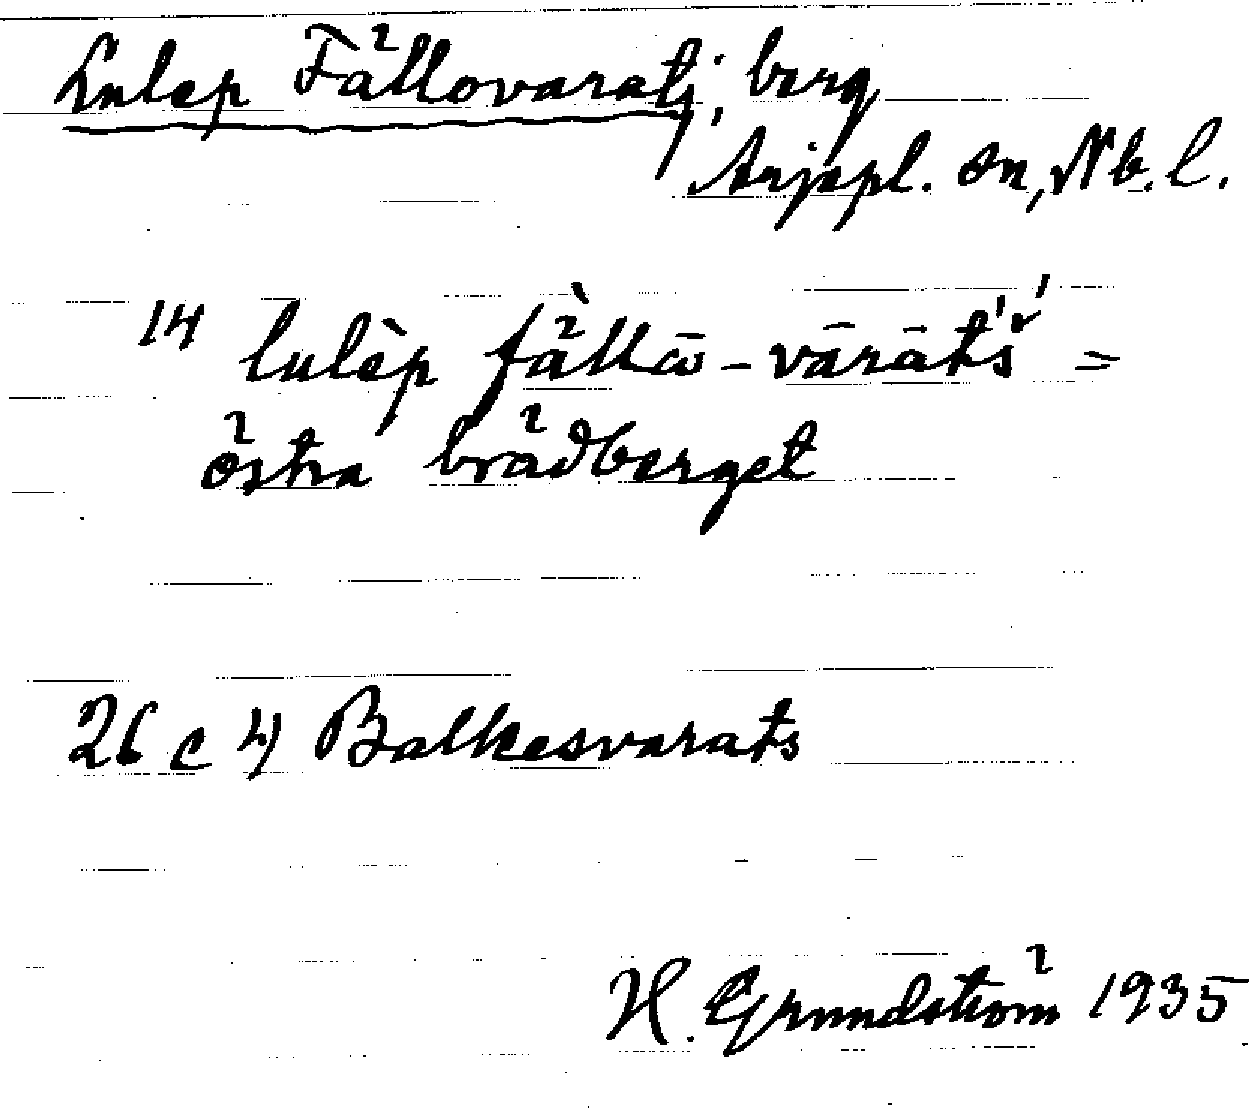 Lulep Fällovaratj, berg
Arjepl. sn, Nb. l.
14 lulēp fällō-vārāts´ =
östra brädberget
26 c 4) Balkesvarats
H. Grundström 1935